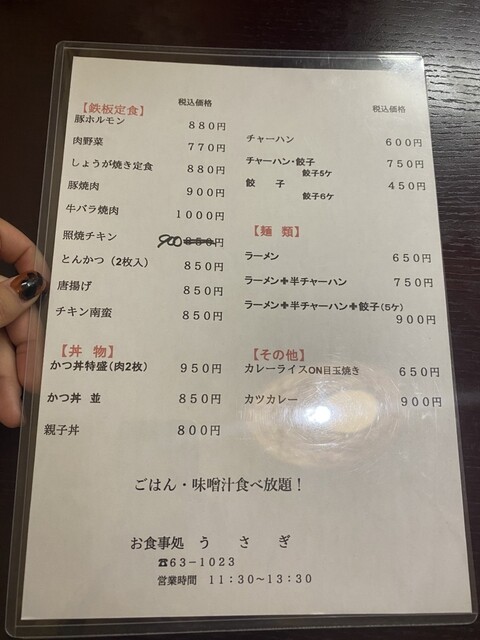 税込価格
【鉄板定食】
豚ホルモン 880円
肉野菜 770円
しょうが焼き定食 880円
豚焼肉 900円
牛バラ焼肉 1000円
照焼チキン 900 850円
とんかつ（2枚入） 850円
唐揚げ 850円
チキン南蛮 850円
【丼 物】
かつ丼特盛(肉2枚) 950円
かつ丼 並 850円
親子丼 800円
税込価格
チャーハン 600円
チャーハン・餃子 750円
餃子5ケ
餃 子 450円
餃子6ケ
【麺 類】
ラーメン 650円
ラーメン+半チャーハン 750円
ラーメン+半チャーハン+餃子(5ケ)
900円
【その他】
カレーライスON目玉焼き 650円
カツカレー 900円
ごはん・味噌汁食べ放題！
お食事処 う さ ぎ
☎63-1023
営業時間 11:30～13:30